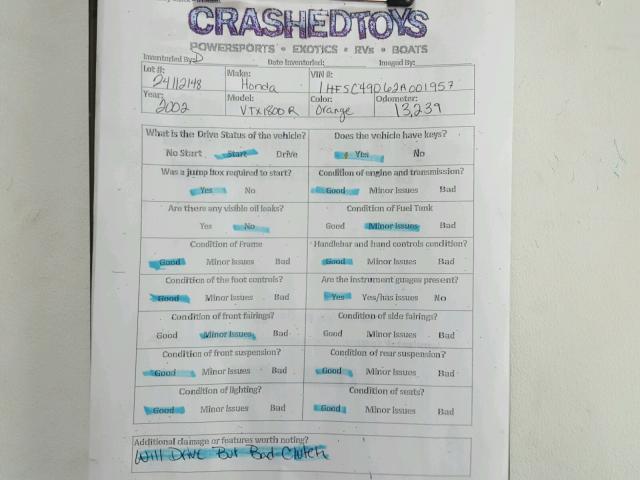 CRASHEDTOYS
POWERSPORTS • EXOTICS • RVs • BOATS
Inventoried By: D Date Inventoried: Imaged By:
Lot #: Make: VIN #:
24112148 Honda 1HFSC49062A001957
Year: Model: Color: Odometer:
2002 VTX1800R Orange 13,239
What is the Drive Status of the vehicle? Does the vehicle have keys?
No Start Start Drive Yes No
Was a jump box required to start? Condition of engine and transmission?
Yes No Good Minor Issues Bad
Are there any visible oil leaks? Condition of Fuel Tank
Yes No Good Minor Issues Bad
Condition of Frame Handlebar and hand controls condition?
Good Minor Issues Bad Good Minor Issues Bad
Condition of the foot controls? Are the instrument guages present?
Good Minor Issues Bad Yes Yes/has issues No
Condition of front fairings? Condition of side fairings?
Good Minor Issues Bad Good Minor Issues Bad
Condition of front suspension? Condition of rear suspension?
Good Minor Issues Bad Good Minor Issues Bad
Condition of lighting? Condition of seats?
Good Minor Issues Bad Good Minor Issues Bad
Additional damage or features worth noting?
Will Drive But Bad Clutch